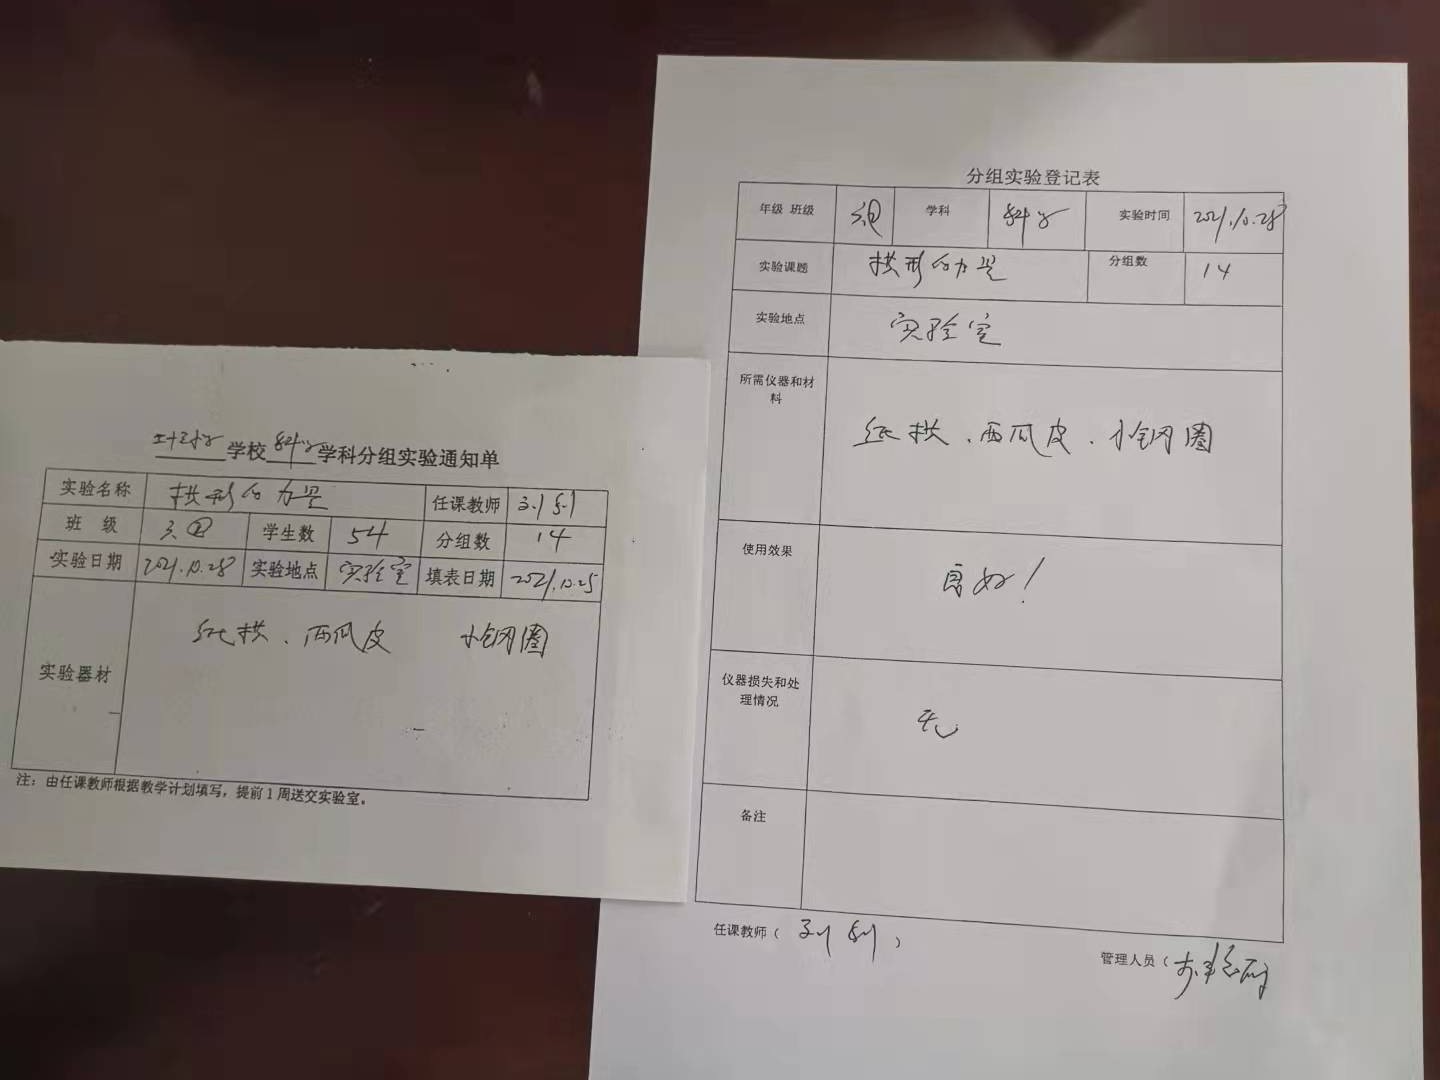 学校科学学科分组实验通知单
实验名称 拱形的力量 任课教师
班 级 三④ 学生数 54 分组数 14
实验日期 2021.10.28 实验地点 实验室 填表日期 2021.10.25
实验器材 纸拱、西瓜皮 小钢圈
注：由任课教师根据教学计划填写，提前1周送交实验室。
分组实验登记表
年级 班级 三④ 学科 科学 实验时间 2021.10.28
实验课题 拱形的力量 分组数 14
实验地点 实验室
所需仪器和材
料
纸拱、西瓜皮、小钢圈
使用效果 良好！
仪器损失和处
理情况
无
备注
任课教师（ ）
管理人员（